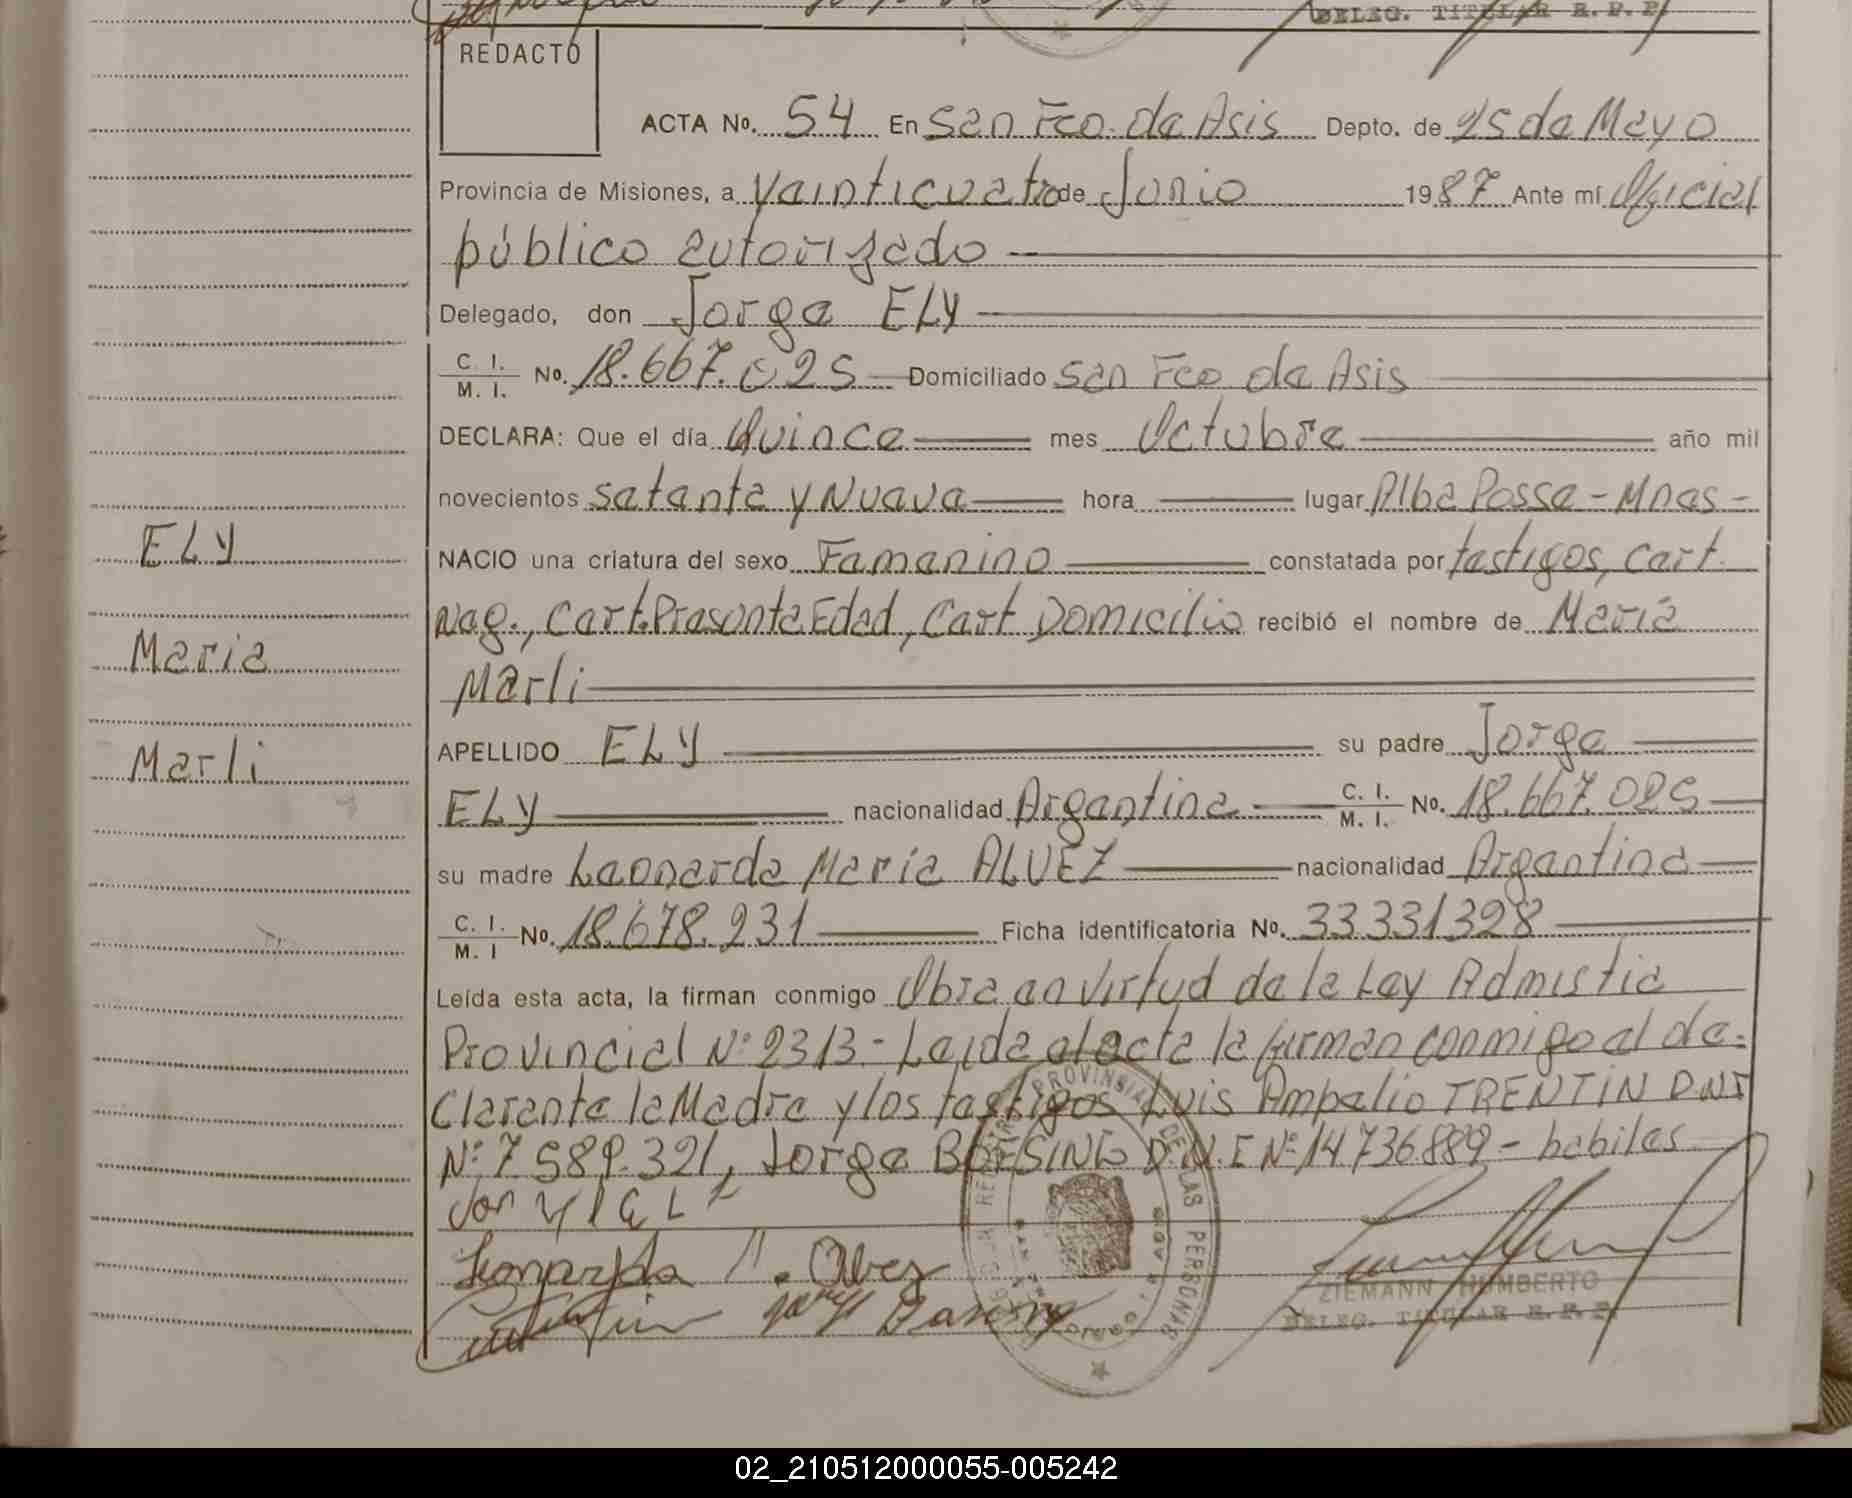 DELEG. TITULAR R. P. P.
REDACTO
ACTA No. 54 En San Fco. de Asis Depto. de 25 de Mayo
Provincia de Misiones, a Veinticuatro de Junio 1987 Ante mí Oficial
público autorizado
Delegado, don Jorge ELY
C. I.
M. I. No. 18.667.025 Domiciliado San Fco de Asis
DECLARA: Que el día Quince mes Octubre año mil
novecientos Setenta y Nueve hora lugar Alba Posse - Mnes -
ELY
NACIO una criatura del sexo Femenino constatada por testigos, Cert.
Neg., Cert. Presunta Edad, Cert Domicilio recibió el nombre de María
Maria
Marli
APELLIDO ELY su padre Jorge
Marli
ELY nacionalidad Argentina C. I.
M. I. No. 18.667.025
su madre Leonarda María ALVEZ nacionalidad Argentina
C. I.
M. I No. 18.678.231 Ficha identificatoria No. 33331328
Leída esta acta, la firman conmigo Obra en virtud de la Ley Admistia
Provincial Nº 2313 - Leida el acta la firman conmigo el de-
clarante la Madre y los testigos Luis Ampelio TRENTIN DNI
Nº 7.589.321, Jorge BOESING D.N.I Nº 14.736.889 - habiles
Leonarda M. Alvez
ZIEMANN HUMBERTO
DELEG. TITULAR R. P. P.
REGISTRO PROVINSIAL DE LAS PERSONAS
02_210512000055-005242